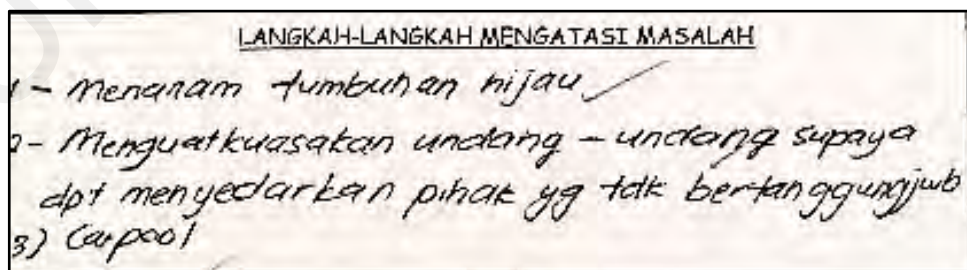 LANGKAH-LANGKAH MENGATASI MASALAH
1 - Menanam tumbuhan hijau
2 - Menguatkuasakan undang - undang supaya
dpt menyedarkan pihak yg tdk bertanggungjwb
3) Carpool